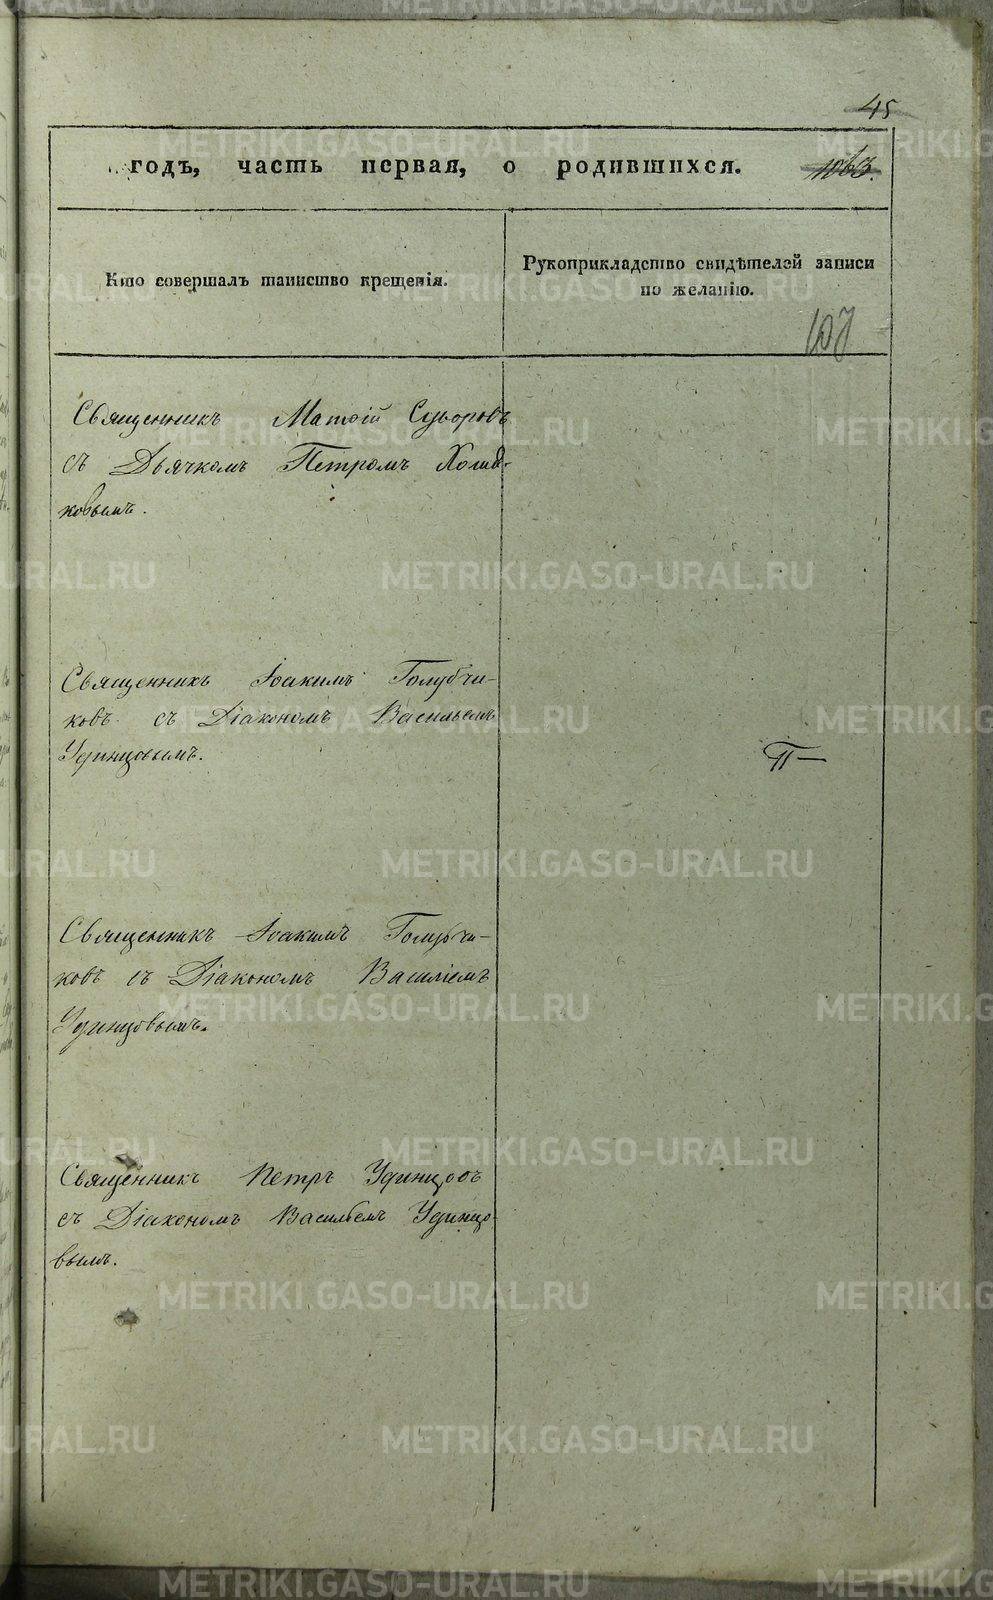 45
годъ, часть первая, о родившихся.
Кто совершалъ таинство крещенія.
Рукоприкладство свидѣтелей записи
по желанію.
107
Священникъ Матѳій Суворовъ
съ Дьячкомъ Петромъ
ковымъ.
Священникъ Іоакимъ Голубчи-
ковъ съ Діакономъ Васильемъ
Удинцовымъ.
Священникъ Іоакимъ Голубчи-
ковъ съ Діакономъ Василіемъ
Удинцовымъ.
Священникъ Петръ Удинцовъ
съ Діакономъ Васильемъ Удинцо-
вымъ.
METRIKI.GASO-URAL.RU